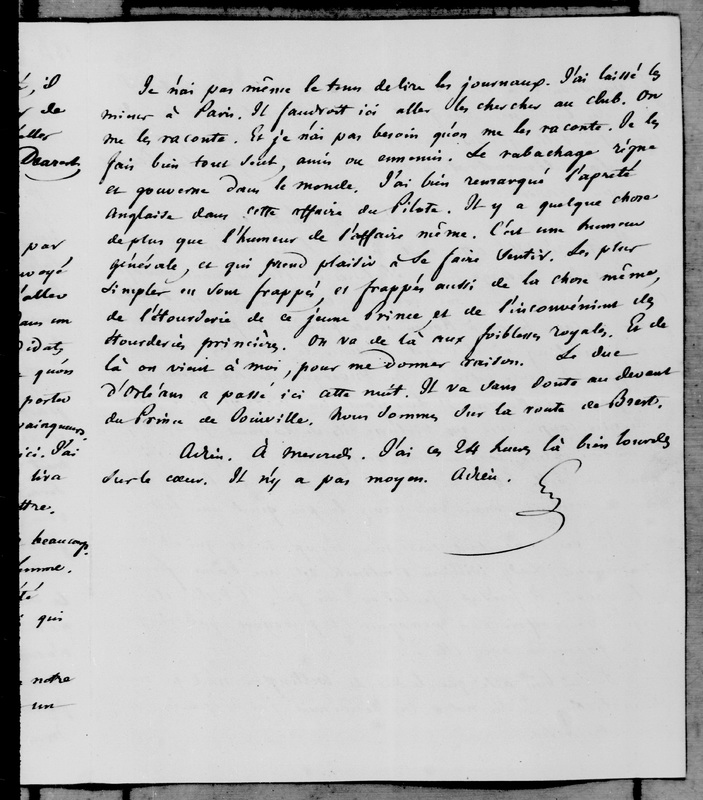 t, il
de
aller
Dearest
par
envoyé
d'aller
dans un
quon
porter
vainqueurs
ici. J'ai
lira
ttre.
beaucoup
qui
notre
un
Je n'ai pas même le tems de lire les journaux. J'ai laissé les
miens à Paris. Il faudroit ici aller les chercher au club. On
me les raconte. Et je n'ai pas besoin qu'on me les raconte. Je les
fais bien tout seul, amis ou ennemis. Le rabachage règne
et gouverne dans le monde. J'ai bien remarqué l'apreté
Anglaise dans cette affaire du Pilote. Il y a quelque chose
de plus que l'humeur de l'affaire même. C'est une humeur
générale, et qui prend plaisir à se faire sentir. Les plus
simples en sont frappés, et frappés aussi de la chose même,
de l'étourderie de ce jeune Prince et de l'inconvénient des
étourderies princières. On va de là aux foiblesses royales. Et de
là on vient à moi, pour me donner raison. Le duc
d'Orléans a passé ici cette nuit. Il va sans doute au devant
du Prince de Joinville. Nous sommes sur la route de Brest.
Adieu. À mercredi. J'ai ces 24 heures là bien lourdes
sur le cœur. Il n'y a pas moyen. Adieu.